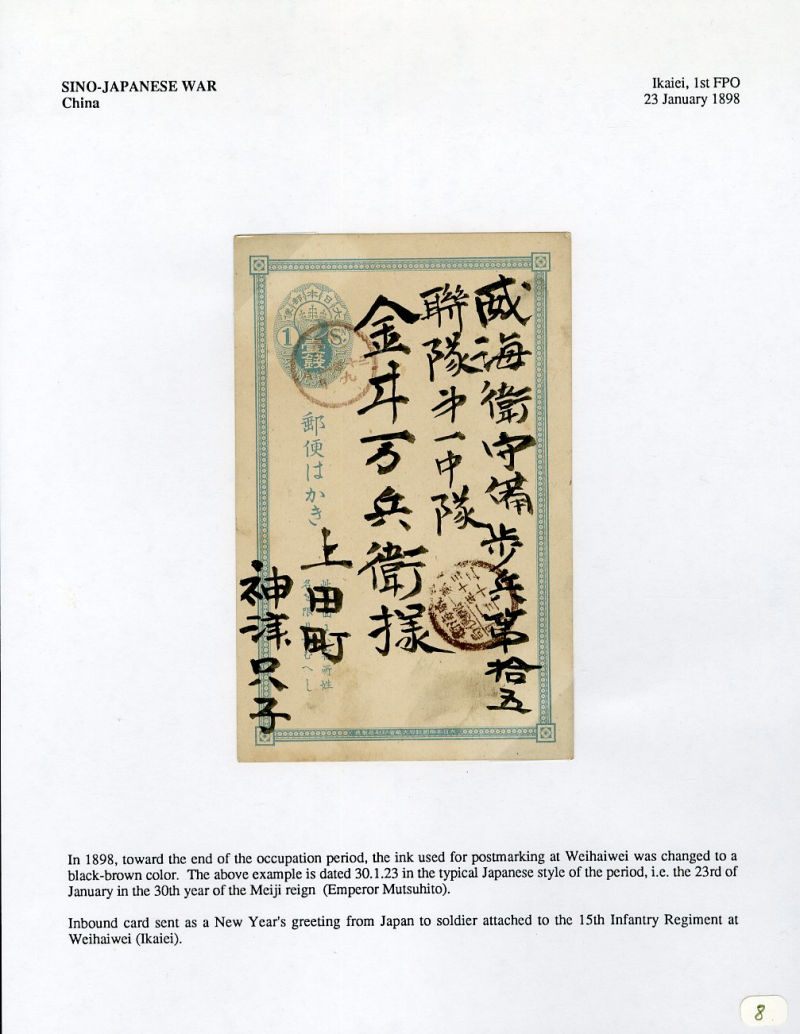 SINO-JAPANESE WAR
China
Ikaiei, 1st FPO
23 January 1898
威海衛守備歩兵第拾五
聯隊第一中隊
金井万兵衛様
上田町
神津只子
大日本郵便
1 S.
壹錢
郵便はかき
In 1898, toward the end of the occupation period, the ink used for postmarking at Weihaiwei was changed to a
black-brown color. The above example is dated 30.1.23 in the typical Japanese style of the period, i.e. the 23rd of
January in the 30th year of the Meiji reign (Emperor Mutsuhito).
Inbound card sent as a New Year's greeting from Japan to soldier attached to the 15th Infantry Regiment at
Weihaiwei (Ikaiei).
8